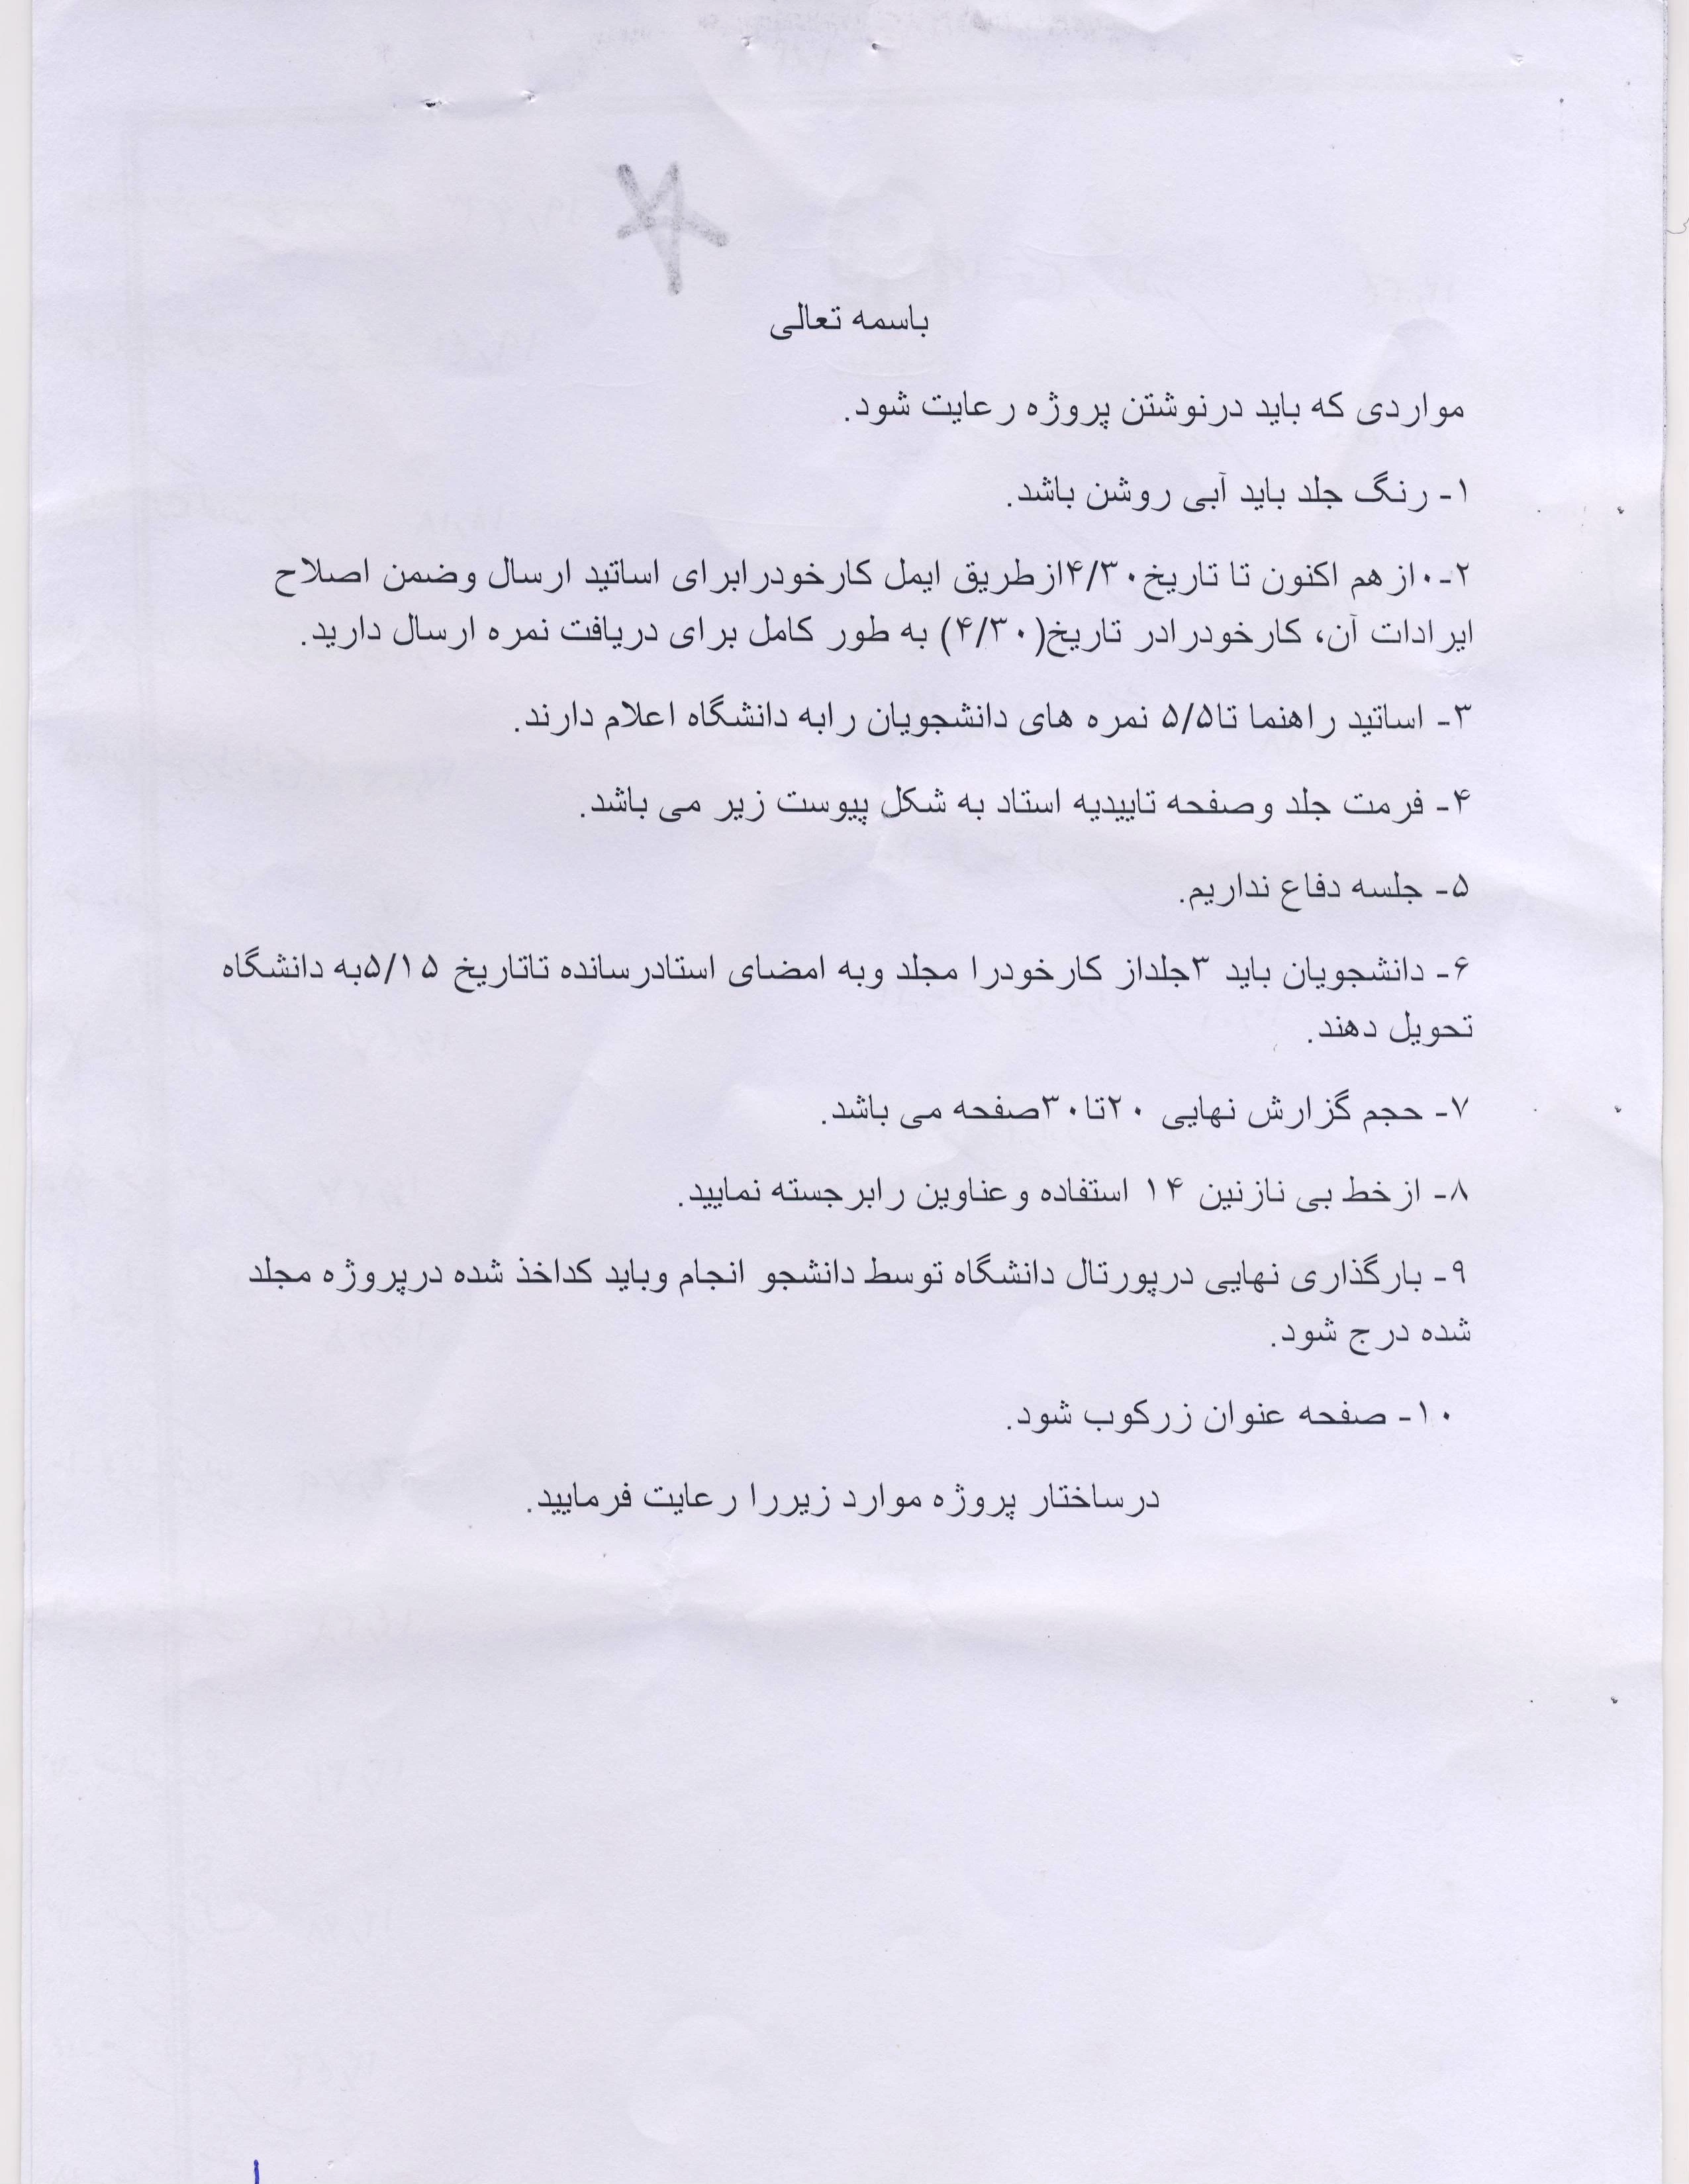 باسمه تعالی
مواردی که باید درنوشتن پروژه رعایت شود.
۱- رنگ جلد باید آبی روشن باشد.
۲-۰ازهم اکنون تا تاریخ۴/۳۰ازطریق ایمل کارخودرابرای اساتید ارسال وضمن اصلاح
ایرادات آن، کارخودرادر تاریخ(۴/۳۰) به طور کامل برای دریافت نمره ارسال دارید.
۳- اساتید راهنما تا۵/۵ نمره های دانشجویان رابه دانشگاه اعلام دارند.
۴- فرمت جلد وصفحه تاییدیه استاد به شکل پیوست زیر می باشد.
۵- جلسه دفاع نداریم.
۶- دانشجویان باید ۳جلداز کارخودرا مجلد وبه امضای استادرسانده تاتاریخ ۵/۱۵به دانشگاه
تحویل دهند.
۷- حجم گزارش نهایی ۲۰تا۳۰صفحه می باشد.
۸- ازخط بی نازنین ۱۴ استفاده وعناوین رابرجسته نمایید.
۹- بارگذاری نهایی درپورتال دانشگاه توسط دانشجو انجام وباید کداخذ شده درپروژه مجلد
شده درج شود.
۱۰- صفحه عنوان زرکوب شود.
درساختار پروژه موارد زیررا رعایت فرمایید.